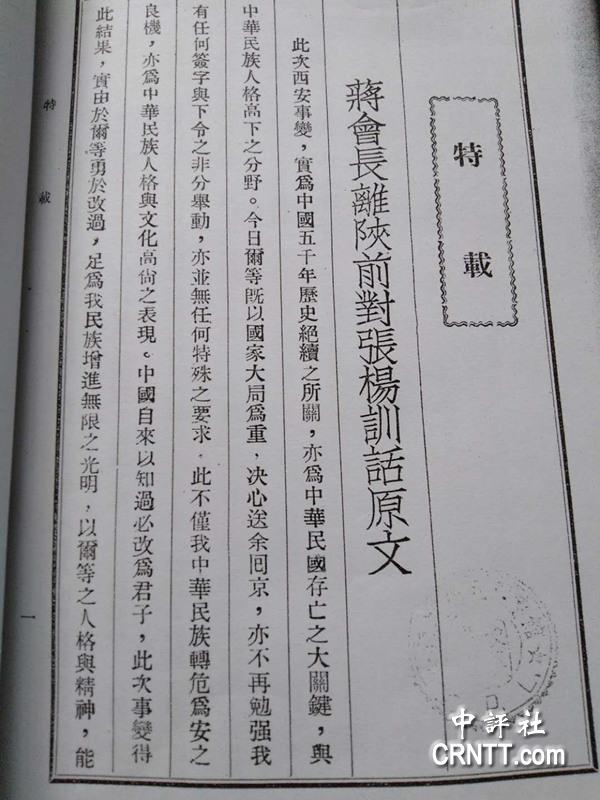 特載
蔣會長離陝前對張楊訓話原文
此次西安事變，實爲中國五千年歷史絕續之所關，亦爲中華民國存亡之大關鍵，與
中華民族人格高下之分野。今日爾等既以國家大局爲重，决心送余囘京，亦不再勉强我
有任何簽字與下令之非分舉動，亦並無任何特殊之要求，此不僅我中華民族轉危爲安之
良機，亦爲中華民族人格與文化高尙之表現。中國自來以知過必改爲君子，此次事變得
此結果，實由於爾等勇於改過，足爲我民族增進無限之光明，以爾等之人格與精神，能
特載
一
中評社
CRNTT.com